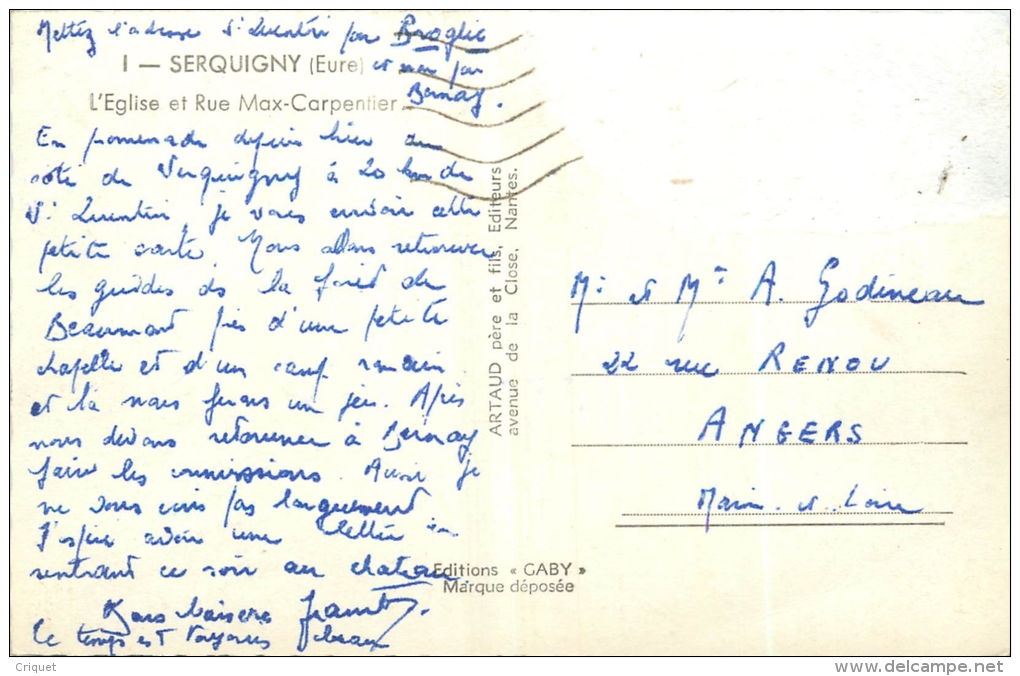 Mettez l'adresse St Quentin par Broglie
et non par
Bernay.
1 — SERQUIGNY (Eure)
L'Eglise et Rue Max-Carpentier
En promenade depuis hier du
côté de Serquigny à 20 km de
St Quentin, je vous envoie cette
petite carte. Nous allons retrouver
les guides ds la forêt de
Beaumont près d'une petite
chapelle et d'un camp romain
et là nous ferons un jeu. Après
nous devons retourner à Bernay
faire les commissions. Aussi je
ne vous écris pas longuement
J'espère avoir une lettre en
rentrant ce soir au chateau.
Bons baisers
le temps est toujours beau
ARTAUD père et fils, Editeurs
avenue de la Close, Nantes.
Editions « GABY »
Marque déposée
Mr et Me A. Godineau
22 rue RENOU
ANGERS
Maine et Loire
Criquet
www.delcampe.net